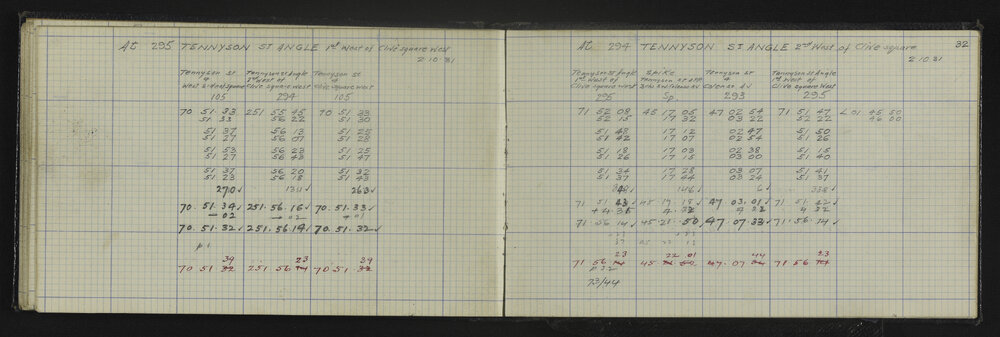 At 295 TENNYSON ST ANGLE 1st West of Clive square West
2.10.31
Tennyson St Tennyson St Angle Tennyson St
& 2nd West of &
West Side of Square Clive square West Clive square West
105 294 105
70 51 33 251 55 45 70 51 33
51 33 56 22 51 30
51 37 56 13 51 25
51 27 56 07 51 28
51 53 56 23 51 25
51 27 56 43 51 47
51 37 56 20 51 32
51 23 56 18 51 43
270 √ 131 √ 263 √
70. 51. 34 √ 251. 56. 16 √ 70. 51. 33 √
- 02 - 02 + 01
70. 51. 32 √ 251. 56. 14 √ 70. 51. 32 √
p1
39 23 39
70 51 32 251 56 14 70 51 32
At 294 TENNYSON ST ANGLE 2nd West of Clive square 32
2.10.31
Tennyson St Angle Spike Tennyson St Tennyson St Angle
1st West of Tennyson St & 1st West of
Clive square West Av Clive square West
295 Sp. 293 295
71 52 08 45 17 05 47 02 54 71 51 47 ∠ 01 45 50
52 15 17 32 03 22 52 22 46 00
51 48 17 12 02 47 51 50
51 42 17 07 02 54 51 26
51 18 17 03 02 38 51 15
51 26 17 15 03 00 51 40
51 34 17 28 03 07 51 41
51 37 17 44 03 24 51 37
349 √ 146 √ 6 √ 338 √
71 51 43 √ 45 17 18 √ 47 03. 01 √ 71. 51. 42 √
+ 4 31 4. 32 4 32 4 32
71. 56. 14 √ 45 21. 50 √ 47 07. 33 √ 71. 56. 14 √
23 22 01 44 23
71 56 14 45 21 50 47. 07 33 71 56 14
p 32
73/44